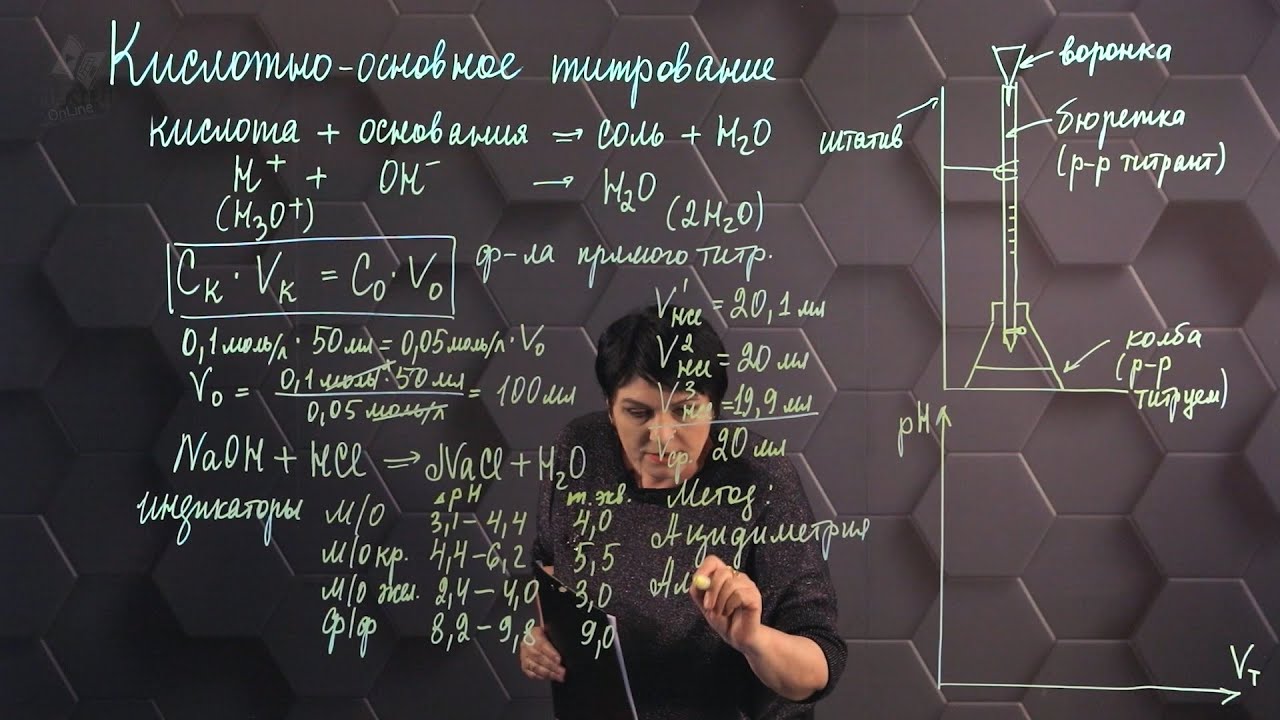 OnLine
Кислотно-основное титрование
кислота + основания = соль + H₂O
H⁺ + OH⁻ → H₂O
(H₃O⁺) (2H₂O)
Cк · Vк = Cо · Vо
ф-ла прямого титр.
0,1 моль/л · 50 мл = 0,05 моль/л · Vо
Vо = 0,1 моль · 50 мл / 0,05 моль/л = 100 мл
V¹HCl = 20,1 мл
V²HCl = 20 мл
V³HCl = 19,9 мл
Vср. 20 мл
NaOH + HCl ⇒ NaCl + H₂O
индикаторы ΔpH т.экв.
м/о 3,1 – 4,4 4,0
м/о кр. 4,4 – 6,2 5,5
м/о жел. 2,4 – 4,0 3,0
ф/ф 8,2 – 9,8 9,0
Метод:
Ацидиметрия
Ал
штатив
воронка
бюретка
(р-р титрант)
колба
(р-р
титруем)
pH
Vт